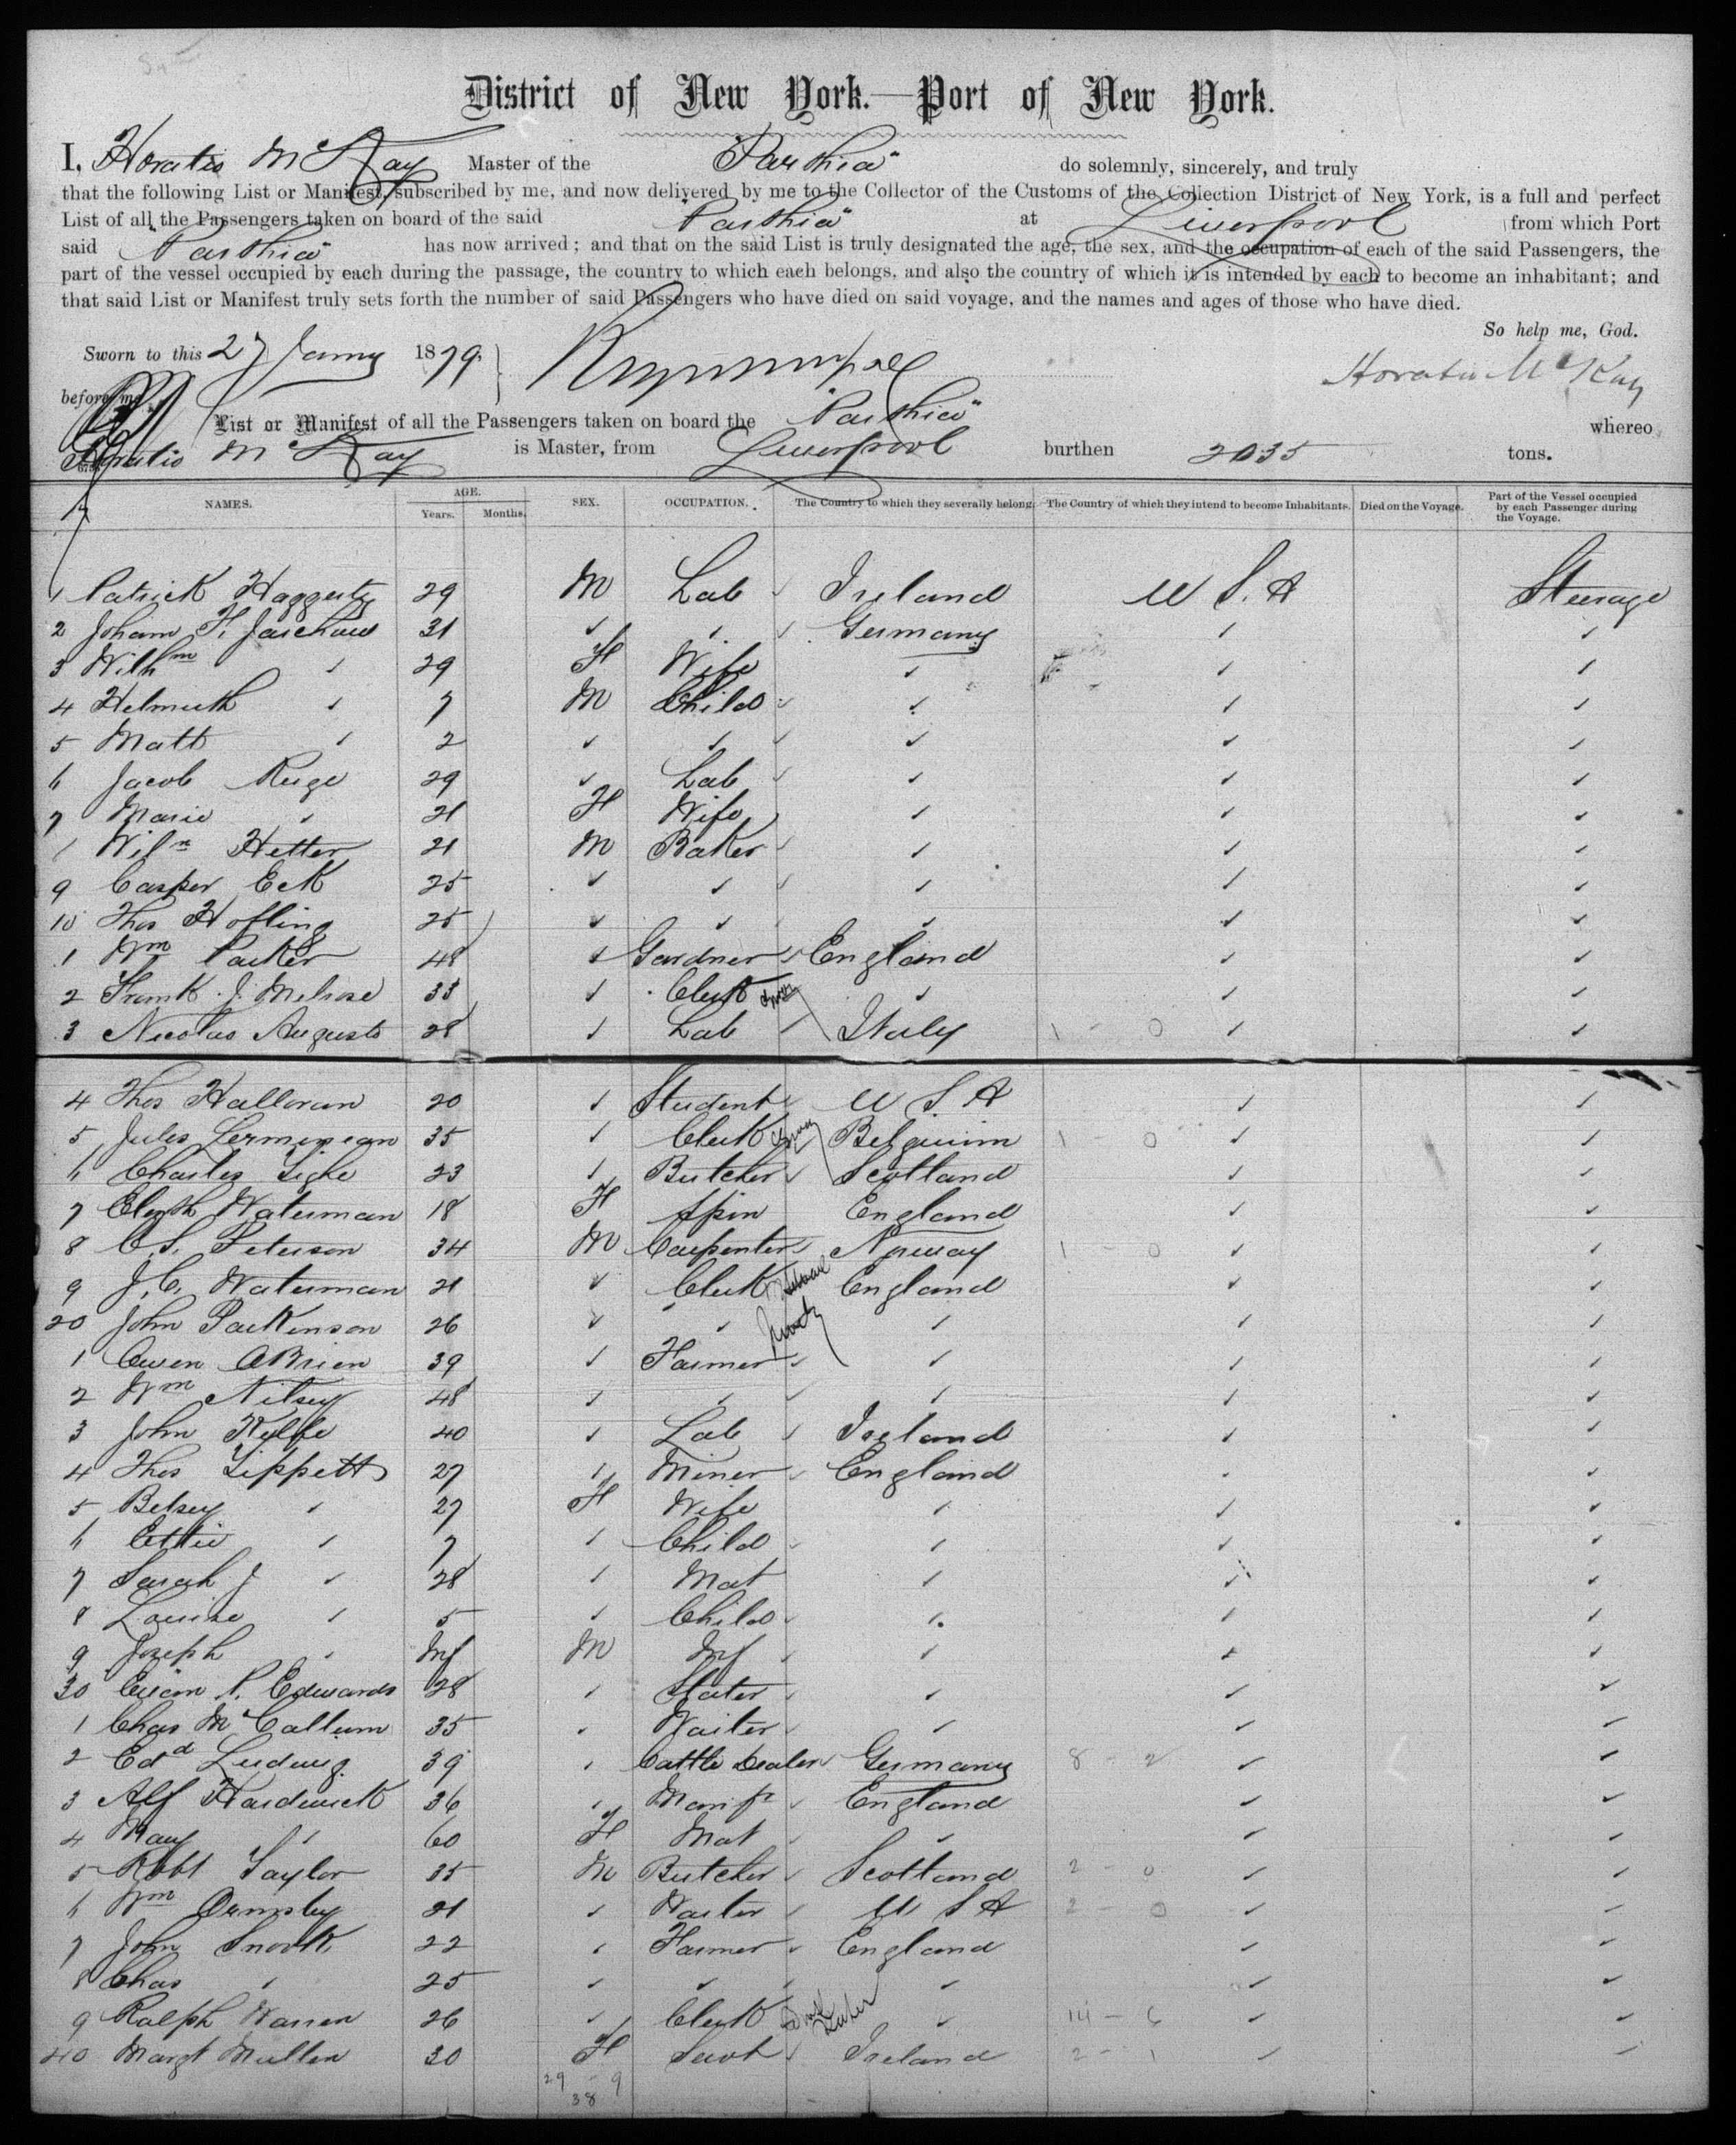 District of New York.—Port of New York.
I, Horatio McKay Master of the "Parthia" do solemnly, sincerely, and truly
that the following List or Manifest, subscribed by me, and now delivered by me to the Collector of the Customs of the Collection District of New York, is a full and perfect
List of all the Passengers taken on board of the said "Parthia" at Liverpool from which Port
said "Parthia" has now arrived; and that on the said List is truly designated the age, the sex, and the occupation of each of the said Passengers, the
part of the vessel occupied by each during the passage, the country to which each belongs, and also the country of which it is intended by each to become an inhabitant; and
that said List or Manifest truly sets forth the number of said Passengers who have died on said voyage, and the names and ages of those who have died.
So help me, God.
Sworn to this 27 Janry 1879. Horatio McKay
before me
List or Manifest of all the Passengers taken on board the "Parthia" whereo
Horatio McKay is Master, from Liverpool burthen 2035 tons.
NAMES. AGE. Years. Months. SEX. OCCUPATION. The Country to which they severally belong. The Country of which they intend to become Inhabitants. Died on the Voyage. Part of the Vessel occupied by each Passenger during the Voyage.
1 Patrick Haggerty 29 M Lab Ireland U S. A Steerage
2 Johann F. Jaschow 31 ✓ ✓ Germany ✓ ✓
3 Wilhm ✓ 29 F Wife ✓ ✓ ✓
4 Helmuth ✓ 7 M Child ✓ ✓ ✓
5 Matt ✓ 2 ✓ ✓ ✓ ✓ ✓
6 Jacob Ruge 29 ✓ Lab ✓ ✓ ✓
7 Marie ✓ 21 F Wife ✓ ✓ ✓
Wilm Hetter 21 M Baker ✓ ✓ ✓
9 Casper Eck 25 ✓ ✓ ✓ ✓ ✓
10 Thos Hofling 25 ✓ ✓ ✓ ✓ ✓
1 Wm Parker 48 ✓ Gardner England ✓ ✓
2 Frank J. Melrose 33 ✓ Clerk ✓ ✓ ✓
3 Nicolas Augusto 28 ✓ Lab Italy 1 - 0 ✓ ✓
4 Thos Halloran 20 ✓ Student U S. A ✓ ✓
5 Jules 35 ✓ Clerk Belguim 1 - 0 ✓ ✓
6 Charles Tighe 23 ✓ Butcher Scotland ✓ ✓
7 Elizth Waterman 18 F Spin England ✓ ✓
8 C. S. Peterson 34 M Carpenter Norway 1 - 0 ✓ ✓
9 J. C. Waterman 21 ✓ Clerk England ✓ ✓
20 John Parkinson 26 ✓ ✓ ✓ ✓ ✓
1 Owen OBrien 39 ✓ Farmer ✓ ✓ ✓
2 Wm 48 ✓ ✓ ✓ ✓ ✓
3 John 40 ✓ Lab Ireland ✓ ✓
4 Thos Tippett 27 ✓ Miner England ✓ ✓
5 Betsey ✓ 27 F Wife ✓ ✓ ✓
6 Ettie ✓ 7 ✓ Child ✓ ✓ ✓
7 Sarah J ✓ 28 ✓ Mat ✓ ✓ ✓
8 Louisa ✓ 5 ✓ Child ✓ ✓ ✓
9 Joseph ✓ Inf M Inf ✓ ✓ ✓
30 P. Edwards 28 ✓ Slater ✓ ✓ ✓
1 Chas McCallum 35 ✓ Waiter ✓ ✓ ✓
2 Edd Ludwig 39 ✓ Cattle Dealer Germany 8 - 2 ✓ ✓
3 Alf Hardwick 36 ✓ Manfr England ✓ ✓
4 Mary ✓ 60 F Mat ✓ ✓ ✓
5 Robt Taylor 35 M Butcher Scotland 2 - 0 ✓ ✓
6 Wm Ormsby 21 ✓ Waiter U S A 2 - 0 ✓ ✓
7 John Snook 22 ✓ Farmer England ✓ ✓
8 Chas ✓ 25 ✓ ✓ ✓ ✓ ✓
9 Ralph Warren 26 ✓ Clerk ✓ 14 - 6 ✓ ✓
40 Margt Mullen 30 F Servt Ireland 2 - 1 ✓ ✓
29 - 9
38